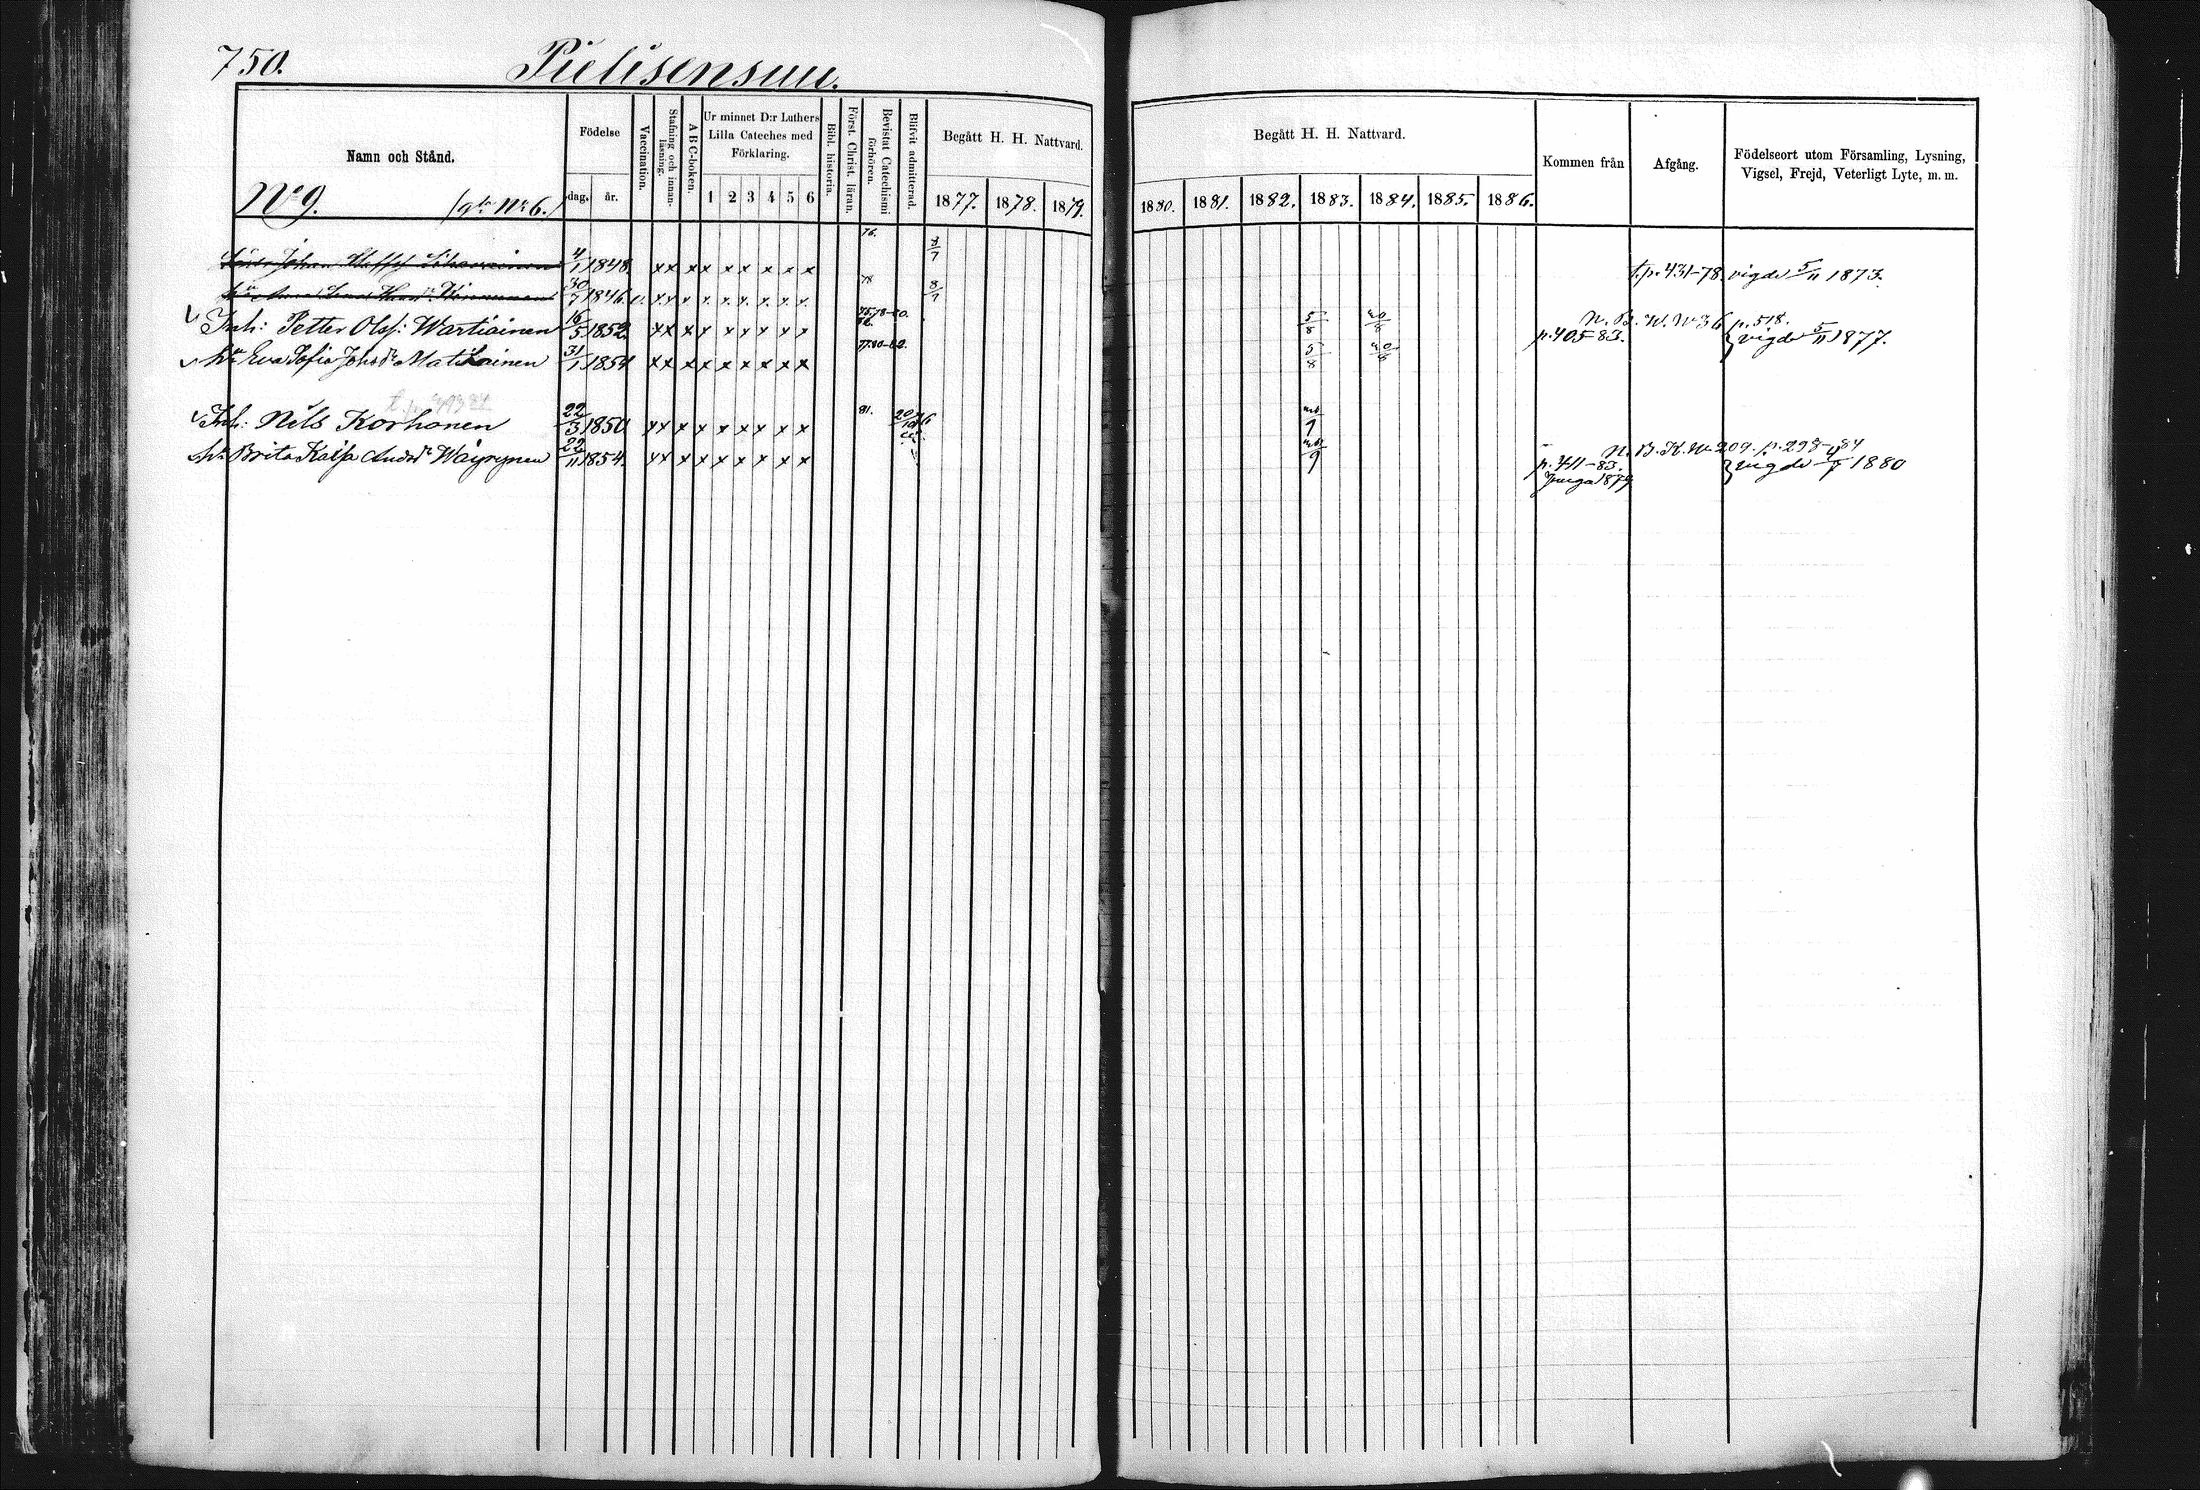 750.
Pielisensuu.
Namn och Stånd.
No 9. No 6.
Födelse
dag. år.
Vaccination.
Stafning och innan-läsning.
A B C-boken.
Ur minnet D:r Luthers
Lilla Cateches med
Förklaring.
1 2 3 4 5 6
Bibl. historia.
Först. Christ. läran.
Bevistat Catechismi förhören.
Blifvit admitterad.
Begått H. H. Nattvard.
1877. 1878. 1879.
Begått H. H. Nattvard.
1880. 1881. 1882. 1883. 1884. 1885. 1886.
Kommen från
Afgång.
Födelseort utom Församling, Lysning,
Vigsel, Frejd, Veterligt Lyte, m. m.
Johan 4/1 1848. x x x x x x x x x 76. 8/7 t. p. 431-78. vigde 5/11 1873.
Anna 30/7 1846. v. x x x x x x x x x 78 8/7
Inh: Petter Olsf: Wartiainen 16/5 1852. x x x x x x x x x 5/8 20/8 p. 405-83. N. B. W. No 36 p. 518.
hu Eva Sofia Johsdr Matilainen 31/1 1854 x x x x x x x x x 77.80-82. 5/8 20/8 vigde 5/11 1877.
Inh: Nils Korhonen 22/3 1850 x x x x x x x x x 81. 9
hu Brita Kaisa Andsdr Wäyrynen 22/11 1854. x x x x x x x x x 9 p. 411-83. N. B. K. No 209. p. 298-84
vigde 1880
1879